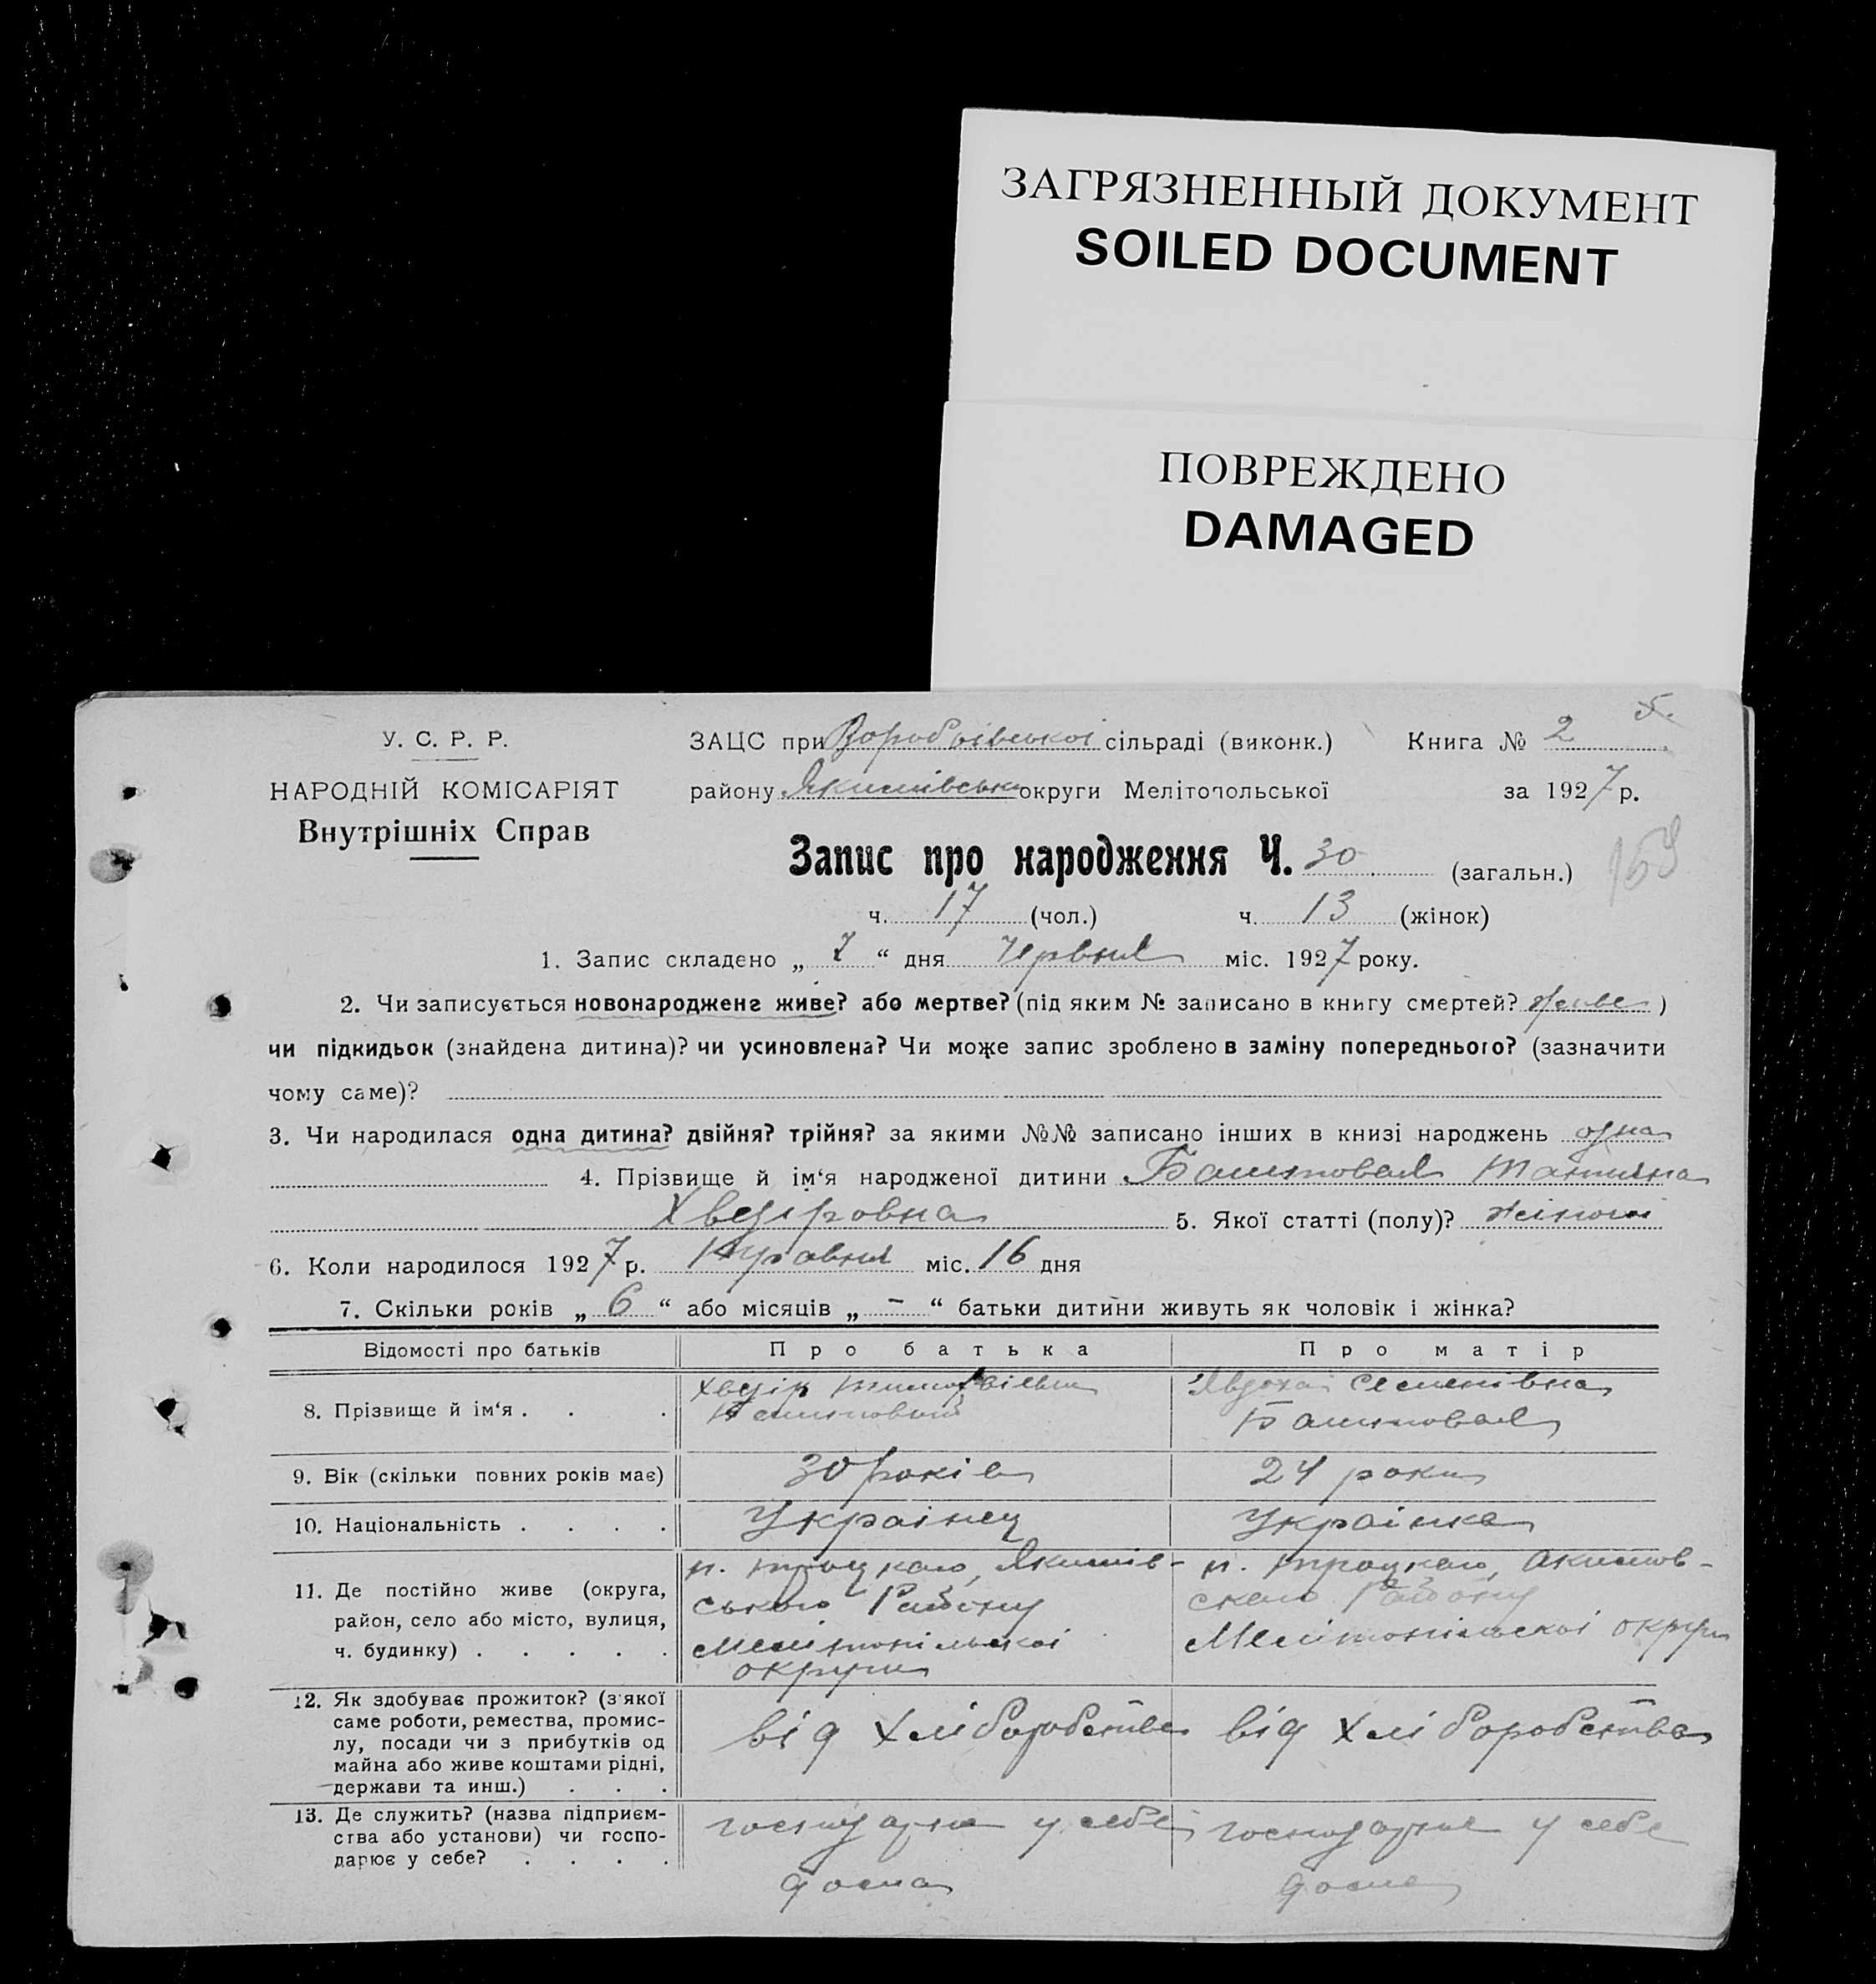 ЗАГРЯЗНЕННЫЙ ДОКУМЕНТ
SOILED DOCUMENT
ПОВРЕЖДЕНО
DAMAGED
5.
У. С. Р. Р.
НАРОДНІЙ КОМІСАРІЯТ
Внутрішніх Справ
ЗАЦС при сільраді (виконк.) Книга № 2
району округи Мелітопольської за 1927 р.
Запис про народження Ч. 30 (загальн.)
159
ч. 17 (чол.) ч. 13 (жінок)
1. Запис складено „ 7 “ дня Червня міс. 1927 року.
2. Чи записується новонароджене живе? або мертве? (під яким № записано в книгу смертей? живе )
чи підкидьок (знайдена дитина)? чи усиновлена? Чи може запис зроблено в заміну попереднього? (зазначити
чому саме)?
3. Чи народилася одна дитина? двійня? трійня? за якими №№ записано інших в книзі народжень одна
4. Прізвище й ім‘я народженої дитини Баштовая
Хведіровна 5. Якої статті (полу)? жіночої
6. Коли народилося 1927 р. міс. 16 дня
7. Скільки років „ 6 “ або місяців „ - “ батьки дитини живуть як чоловік і жінка?
Відомості про батьків Про батька Про матір
8. Прізвище й ім‘я . . . Хведір Явдоха Семенівна
Баштовий Баштовая
9. Вік (скільки повних років має) 30 років 24 роки
10. Національність . . . . Українец Українка
11. Де постійно живе (округа,
район, село або місто, вулиця,
ч. будинку) . . . . .
п. Троцкого, Якимів-
ського Району
Мелітопільскої
округи
п. Троцкого, Акимов-
ского Району
Мелітопільскої округи
12. Як здобуває прожиток? (з якої
саме роботи, ремества, промис-
лу, посади чи з прибутків од
майна або живе коштами рідні,
держави та инш.) . . .
від Хліборобства від Хліборобства
13. Де служить? (назва підприєм-
ства або установи) чи госпо-
дарює у себе? . . . .
у себе у себе
дома дома